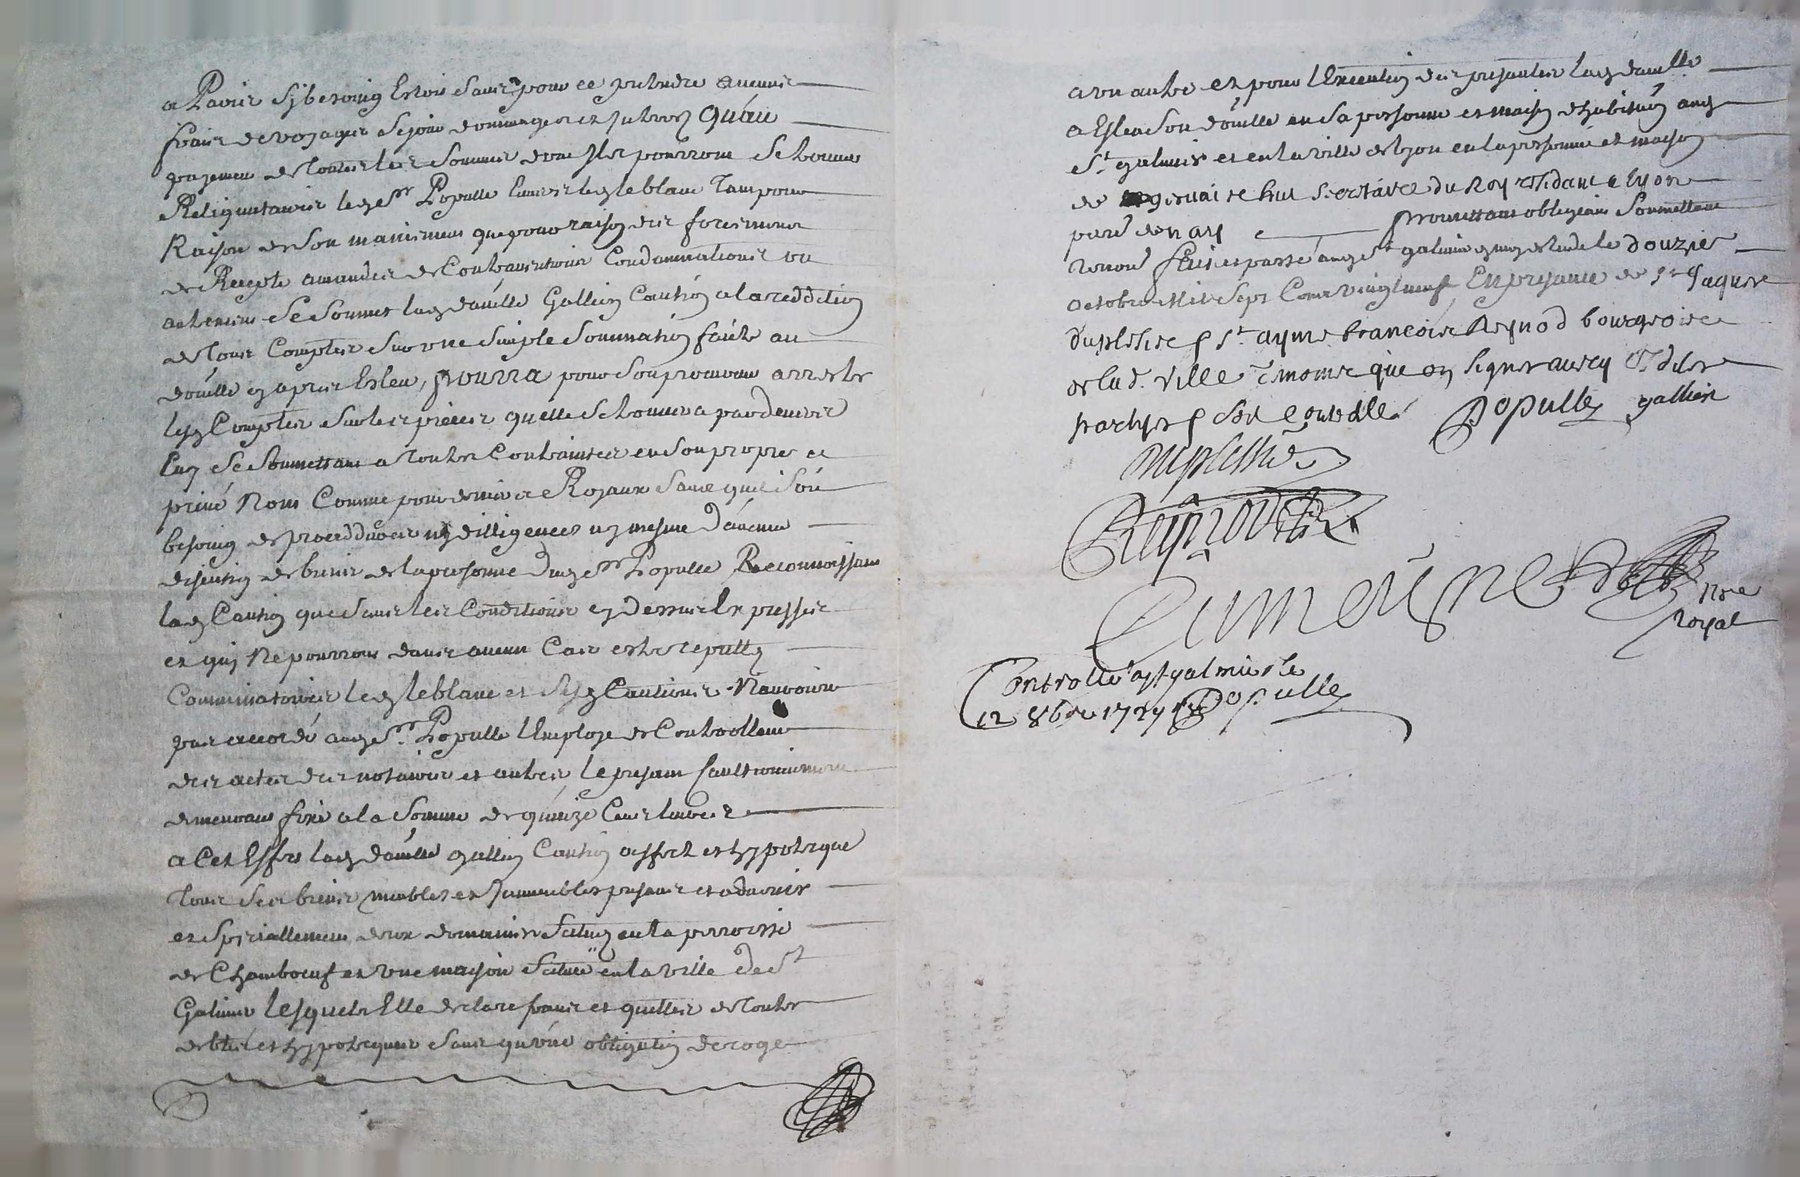 a Paris sy besoing Estoit sans pour ce pretendre aucuns
frais de voyages sejour dommages et Interez qu'au
payement de toutes les sommes dont Il se pourroit se trouver
Reliquataire led sr Populle Envers led leblanc tant pour
Raison de son maniement que pour raison des forcements
de Recepte amandes de Contraventions Condamnations ou
autrement se soumet lad douelle Gallien Caution a la reddition
de tous Comptes sur une simple sommation faite au
douelle cy apres Esleu, pourra pour son procureur arrester
les Comptes sur les pieces quelle se trouvera par devers
luy se soumettant a toutes Contraintes en son propre et
privé Nom Comme pour deniers Royaux sans quil soit
besoing de proceddures ny dilligences ny mesme d'aucune
discution de biens de la personne dud sr Populle Reconnoissant
lad Caution que sans les Conditions cy dessus Expresses
et quy Ne pourront dans aucun Cas estre reputtez
Comminatoires led leblanc et sesd Cautions N'auroient
pas accordé aud sr Populle l'Employ de Controlleur
des actes des notaires et autres, le present Cautionnement
demeurant fixé a la somme de quinze Cens livres
a Cet Effet lad douelle gallien Caution affecte et hypoteque
tous ses biens meubles et Immeubles presens et advenir
et spetiallement deux domaines situez en la parroisse
de Chambœuf et une maison située en la ville de St
Galmier lesquels Elle declare francs et quittes de toutes
debtes et hypoteques sans qu'une obligation deroge
a un autre et pour l'Execution des presentes lad douelle
a Esleu son douelle en sa personne et maison d'habitation aud
St galmier et en la ville de lyon en la personne et maison
de gervaise secretaire du Roy residant a lyon
promettans obligeans soumettans
renonc fait et passé aud St galmier le douzie
octobre Mil Sept Cens vingt neuf En presence de sr Jaques
duplessis St ayme francois Reynod bourgeois
de lad. ville temoins quy ont signé avec les dites
partyes
Populle gallien
Duplessis
Reynod
nore
royal
Controllé a St galmier le
12 8bre 1729 Populle